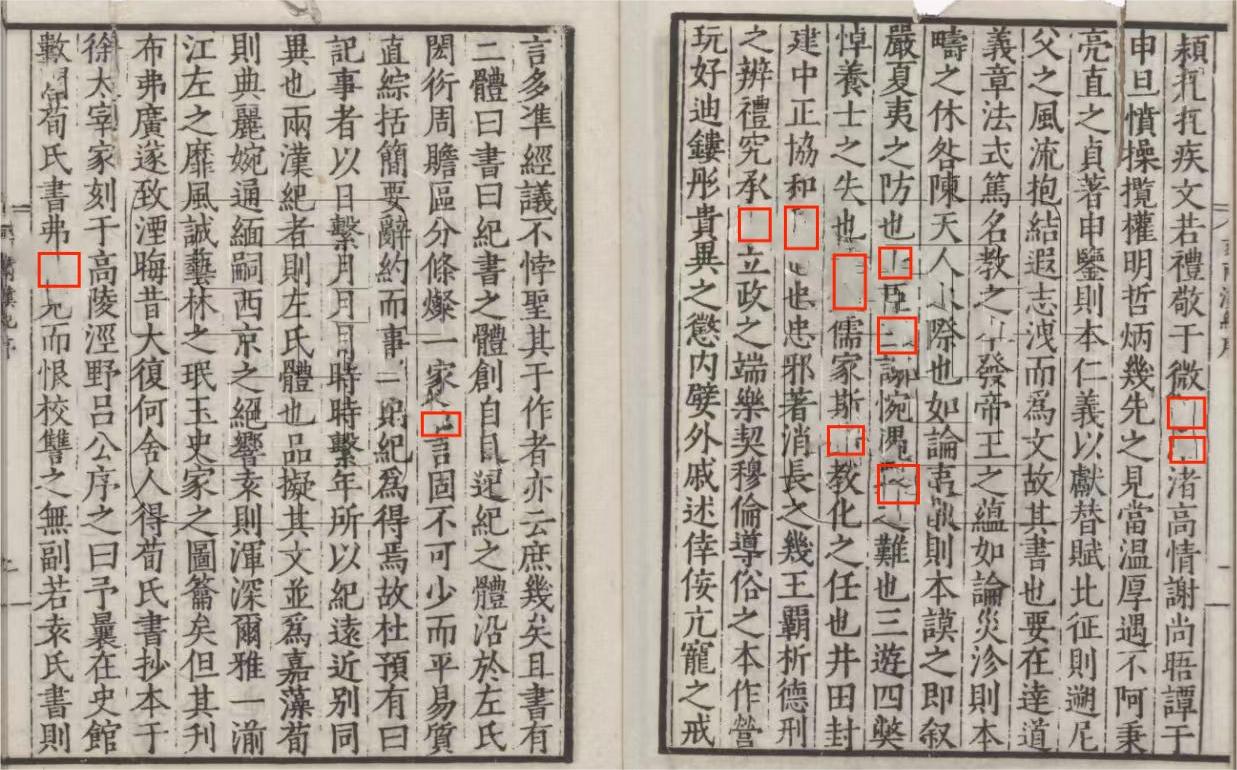 疾文若禮敬于微渚高情謝尚晤譚于
申旦憤操攬權明哲炳幾先之見當温厚遇不阿秉
亮直之貞著申鑒則本仁義以獻替賦比征則遡尼
父之風流抱結遐志洩而爲文故其書也要在達道
義章法式篤名教之發帝王之蘊如論災沴則本
疇之休咎陳天人之際也如論夷狄則本謨之即叙
嚴夏夷之防也惋之難也三遊四奬
悼養士之失也儒家斯教化之任也井田封
建中正協和也忠邪著消長之幾王霸析德刑
之辨禮究承立政之端樂契穆倫導俗之本作營
玩好迪鏤彤貴異之懲内嬖外戚述倖侫亢寵之戒
言多準經議不悖聖其于作者亦云庶幾矣且書有
二體曰書曰紀書之體創自遷紀之體沿於左氏
閎衍周贍區分條燦一家言固不可少而平易質
直綜括簡要辭約而事紀爲得焉故杜預有曰
記事者以日繫月月時時繫年所以紀遠近别同
異也兩漢紀者則左氏體也品擬其文並爲嘉藻荀
則典麗婉通緬嗣西京之絕響袁則渾深爾雅一湔
江左之靡風誠藝林之珉玉史家之圖籥矣但其刋
布弗廣遂致湮晦昔大復何舍人得荀氏書抄本于
徐太宰家刻于高陵涇野呂公序之曰予曩在史館
數荀氏書弗而恨校讐之無副若袁氏書則